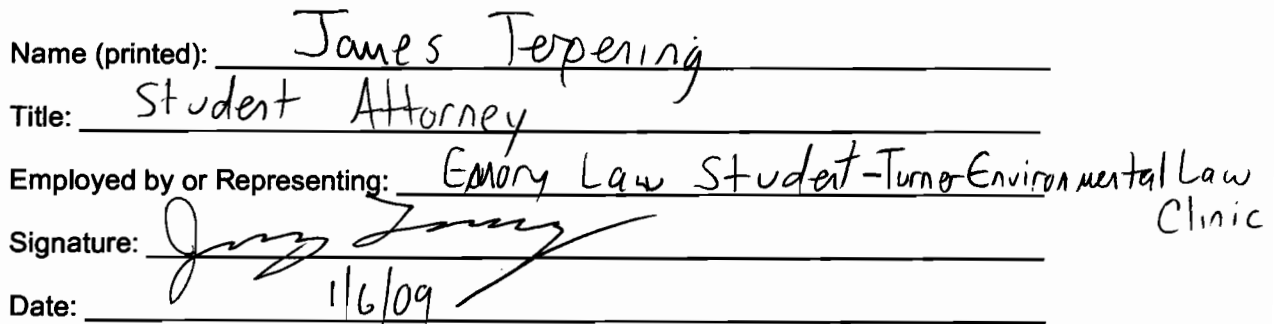 Name (printed): James Terpening
Title: Student Attorney
Employed by or Representing: Emory Law Student-Turner Environmental Law
Clinic
Signature:
Date: 1/6/09